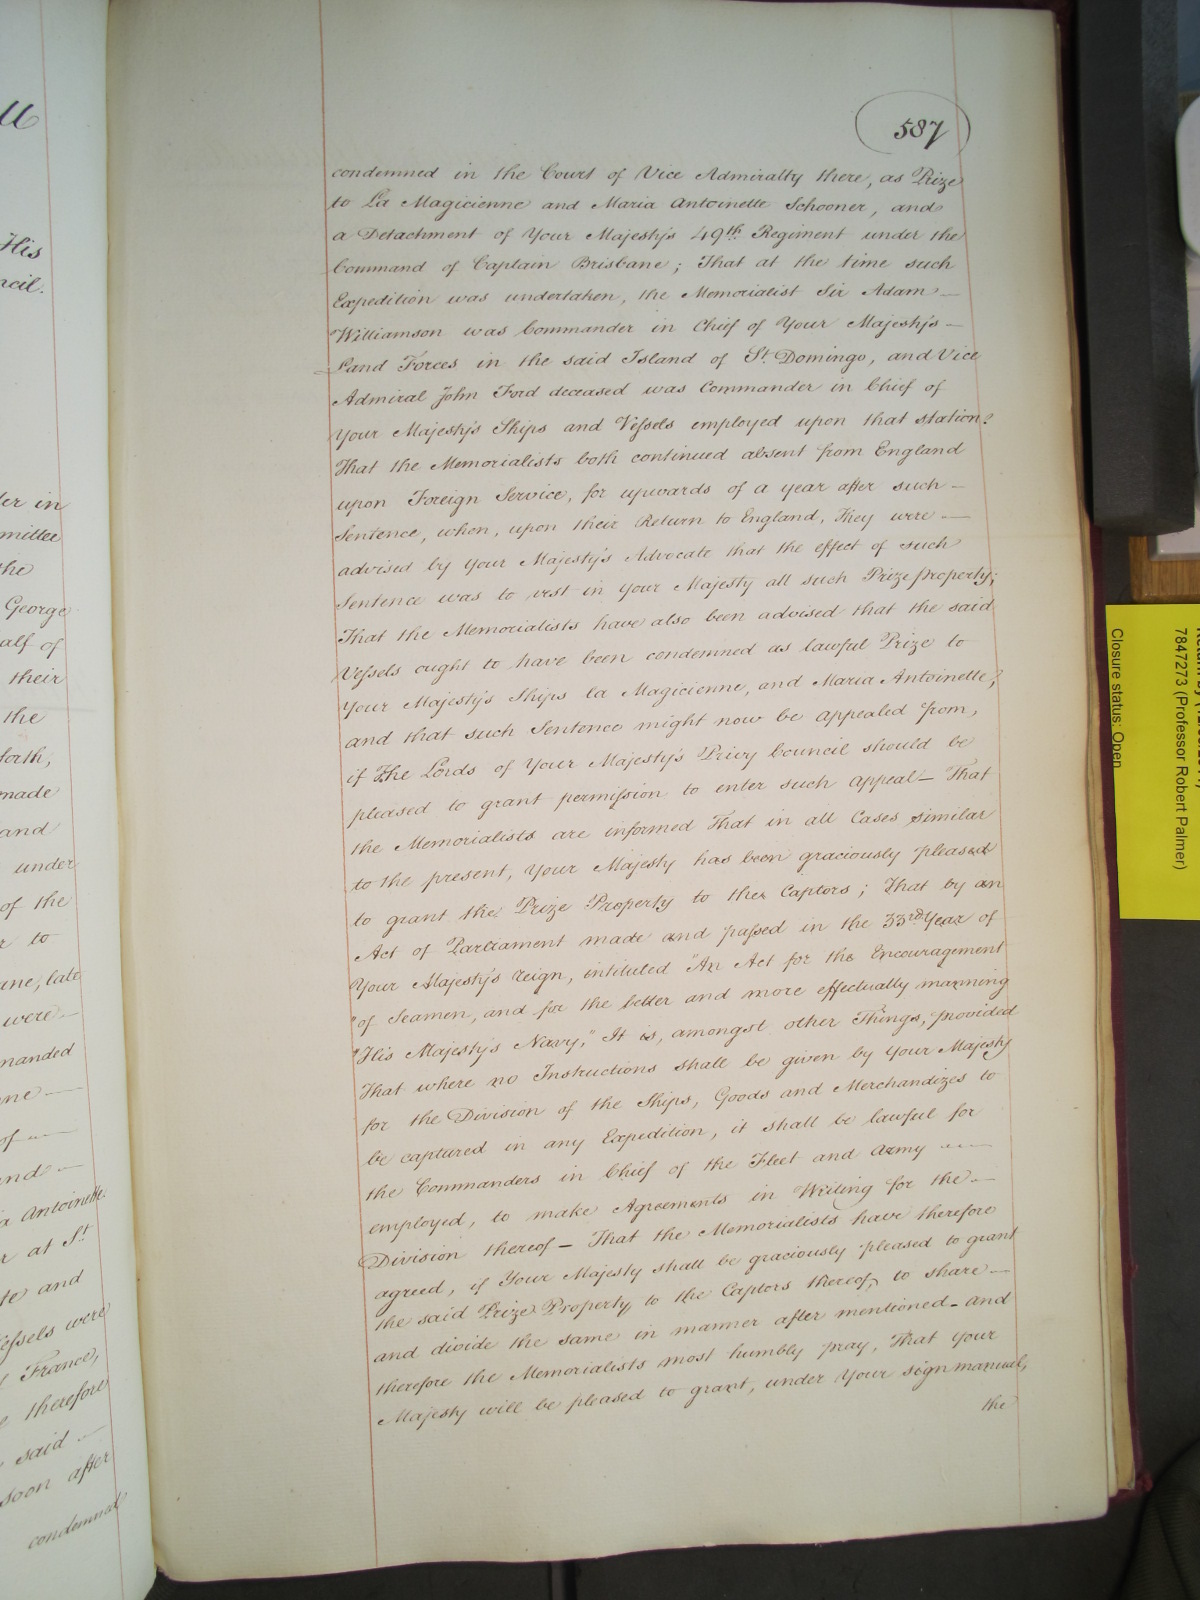 587
condemned in the Court of Vice Admiralty there, as Prize
to La Magicienne and Maria Antoinette Schooner, and
a Detachment of Your Majesty's 49th Regiment under the
Command of Captain Brisbane; That at the time such
Expedition was undertaken, the Memorialist Sir Adam —
Williamson was Commander in Chief of Your Majesty's —
Land Forces in the said Island of St. Domingo, and Vice
Admiral John Ford deceased was Commander in Chief of
Your Majesty's Ships and Vessels employed upon that station;
That the Memorialists both continued absent from England
upon Foreign Service, for upwards of a year after such —
Sentence, when, upon their Return to England, They were —
advised by Your Majesty's Advocate that the effect of such
Sentence was to vest in Your Majesty all such Prize property;
That the Memorialists have also been advised that the said
Vessels ought to have been condemned as lawful Prize to
Your Majesty's Ships la Magicienne, and Maria Antoinette,
and that such Sentence might now be appealed from,
if The Lords of Your Majesty's Privy Council should be
pleased to grant permission to enter such Appeal — That
the Memorialists are informed That in all Cases similar
to the present, Your Majesty has been graciously pleased
to grant the Prize Property to the Captors; That by an
Act of Parliament made and passed in the 33rd Year of
Your Majesty's reign, intituled "An Act for the Encouragement
"of Seamen, and for the better and more effectually manning
"His Majesty's Navy," It is, amongst other Things, provided
That where no Instructions shall be given by Your Majesty
for the Division of the Ships, Goods and Merchandizes to
be captured in any Expedition, it shall be lawful for
the Commanders in Chief of the Fleet and Army —
employed, to make Agreements in Writing for the —
Division thereof — That the Memorialists have therefore
agreed, if Your Majesty shall be graciously pleased to grant
the said Prize Property to the Captors thereof, to share —
and divide the same in manner after mentioned — and
therefore the Memorialists most humbly pray, That Your
Majesty will be pleased to grant, under Your sign manual,
the
His
ncil.
er in
mmittee
the
George
alf of
their
the
forth;
made
and
under
of the
r to
ane, late
were —
manded
ne —
of —
and —
a Antoinette
r at St.
te and
essels were
France,
therefore
said —
soon after
condemned
7847273 (Professor Robert Palmer)
Closure status: Open